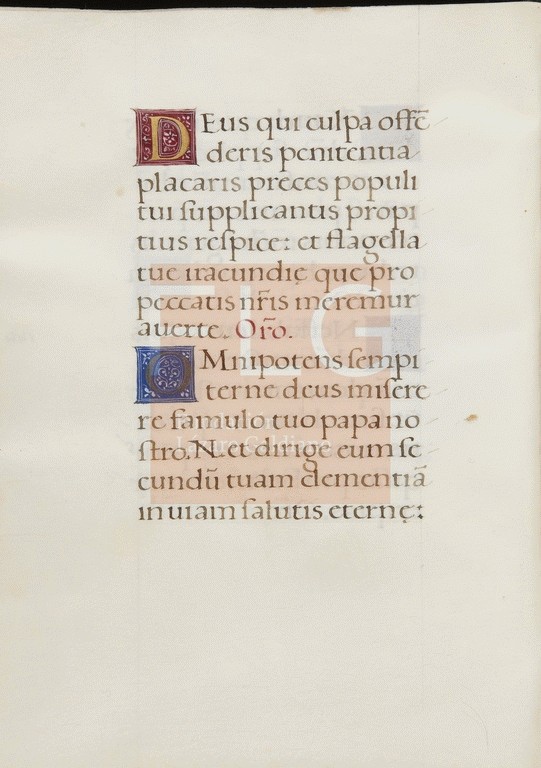 DEus qui culpa offẽ
deris penitentia
placaris preces populi
tui ſupplicantis propi
tius reſpice: et flagella
tue iracundię que pro
peccatis nr̃is meremur
auerte. Or̃o.
OMnipotens ſempi
terne deus miſere
re famulo tuo papa no
ſtro.N. et dirige eum ſe
cundũ tuam clementiã
in uiam ſalutis eternę:
FLG
Fundación
Lázaro Galdiano